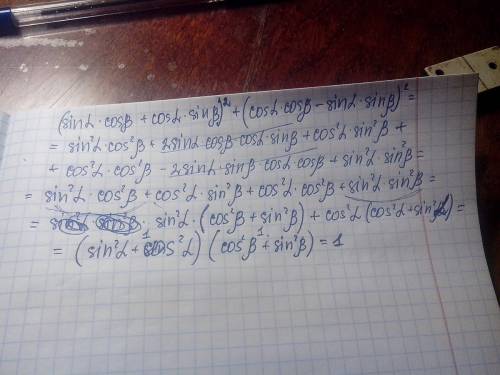 (sinα·cosβ + cosα·sinβ)² + (cosα·cosβ − sinα·sinβ)² =
= sin²α·cos²β + 2sinα·cosβ·cosα·sinβ + cos²α·sin²β +
+ cos²α·cos²β − 2sinα·sinβ·cosα·cosβ + sin²α·sin²β =
= sin²α·cos²β + cos²α·sin²β + cos²α·cos²β + sin²α·sin²β =
= sin²α·(cos²β + sin²β) + cos²α(cos²α + sin²α) =
= (sin²α + cos²α)(cos²β + sin²β) = 1